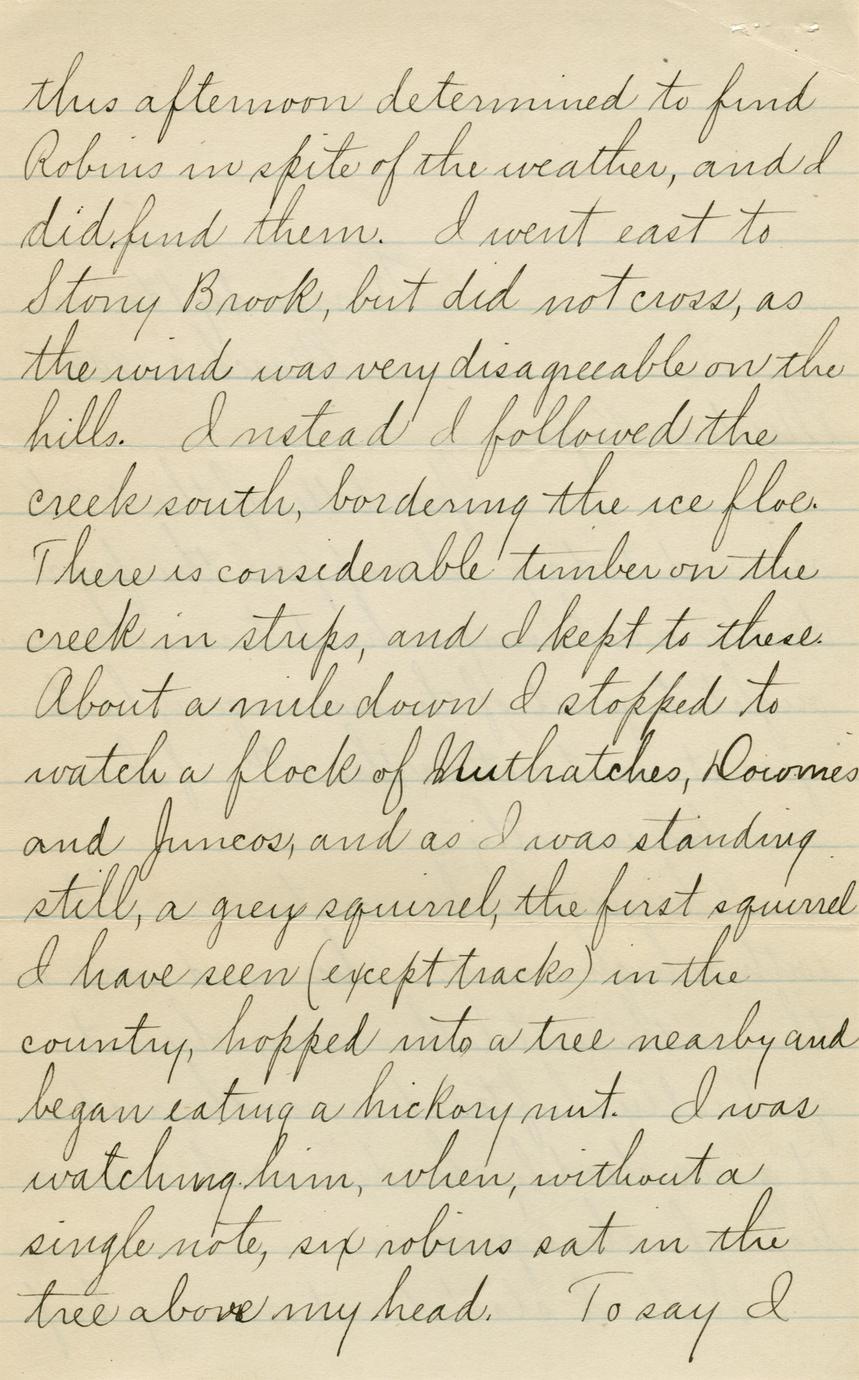 this afternoon determined to find
Robins in spite of the weather, and I
did find them. I went east to
Stony Brook, but did not cross, as
the wind was very disagreeable on the
hills. Instead I followed the
creek south, bordering the ice floe.
There is considerable timber on the
creek in strips, and I kept to these.
About a mile down I stopped to
watch a flock of Nuthatches, Downies
and Juncos, and as I was standing
still, a grey squirrel, the first squirrel
I have seen (except tracks) in the
country, hopped into a tree nearby and
began eating a hickory nut. I was
watching him, when, without a
single note, six robins sat in the
tree above my head. To say I